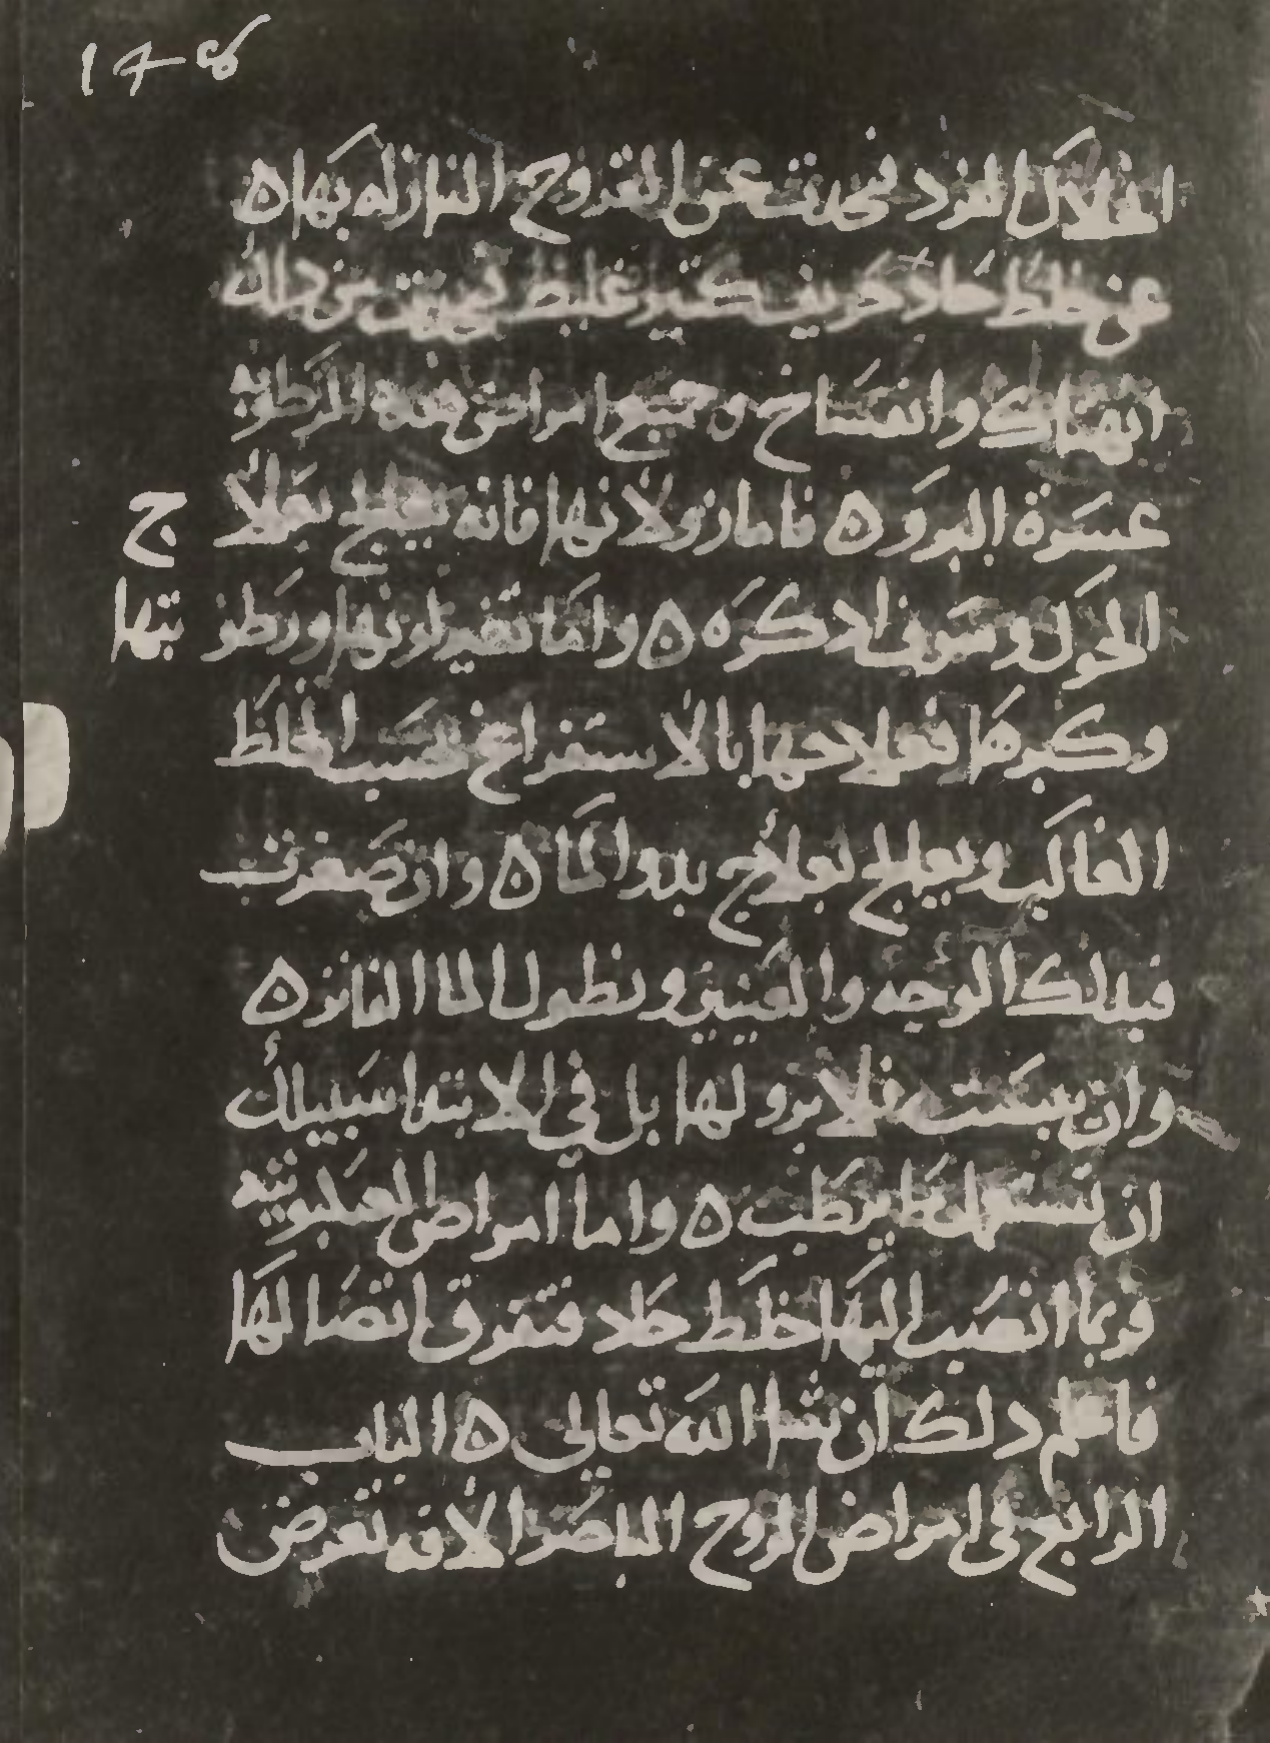 انحلال الفرد فيحدث عن القروح النازله بها ه
عن خلط حاد حريف كثير غليظ فيحدث من ذلك
انهتاك وانفساخ وجميع امراض هذه الرطوبه
عسرة البرو ه فاما زولانها فانه يعالج بعلا ج
الحول وسوف اذكره ه واما تغير لونها ورطو بتها
وكبرها فعلاجها بالاستفراغ بحسب الخلط
الغالب ويعالج بعلاج بدو الما ه وان صغرت
فبدلك الوجه والعينين ونطول الما الفاتر ه
وان فلا برو لها بل في الابتدا سبيلك
ان تستعمل ما يرطب ه واما امراض
فربما انصب اليها خلط حاد فتفرق اتصالها
فاعلم ذلك ان شا الله تعالى ه الباب
الرابع في امراض الروح الباصر الافه تعرض